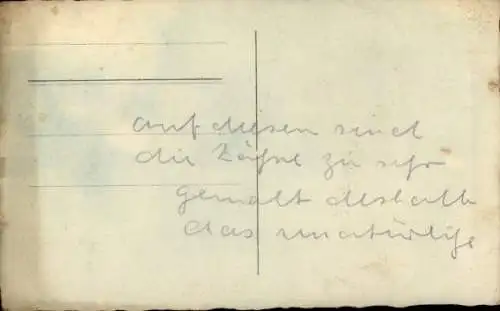 auf diesen sind
die Köpfe zu sehr
gemalt deshalb
das unatürliche